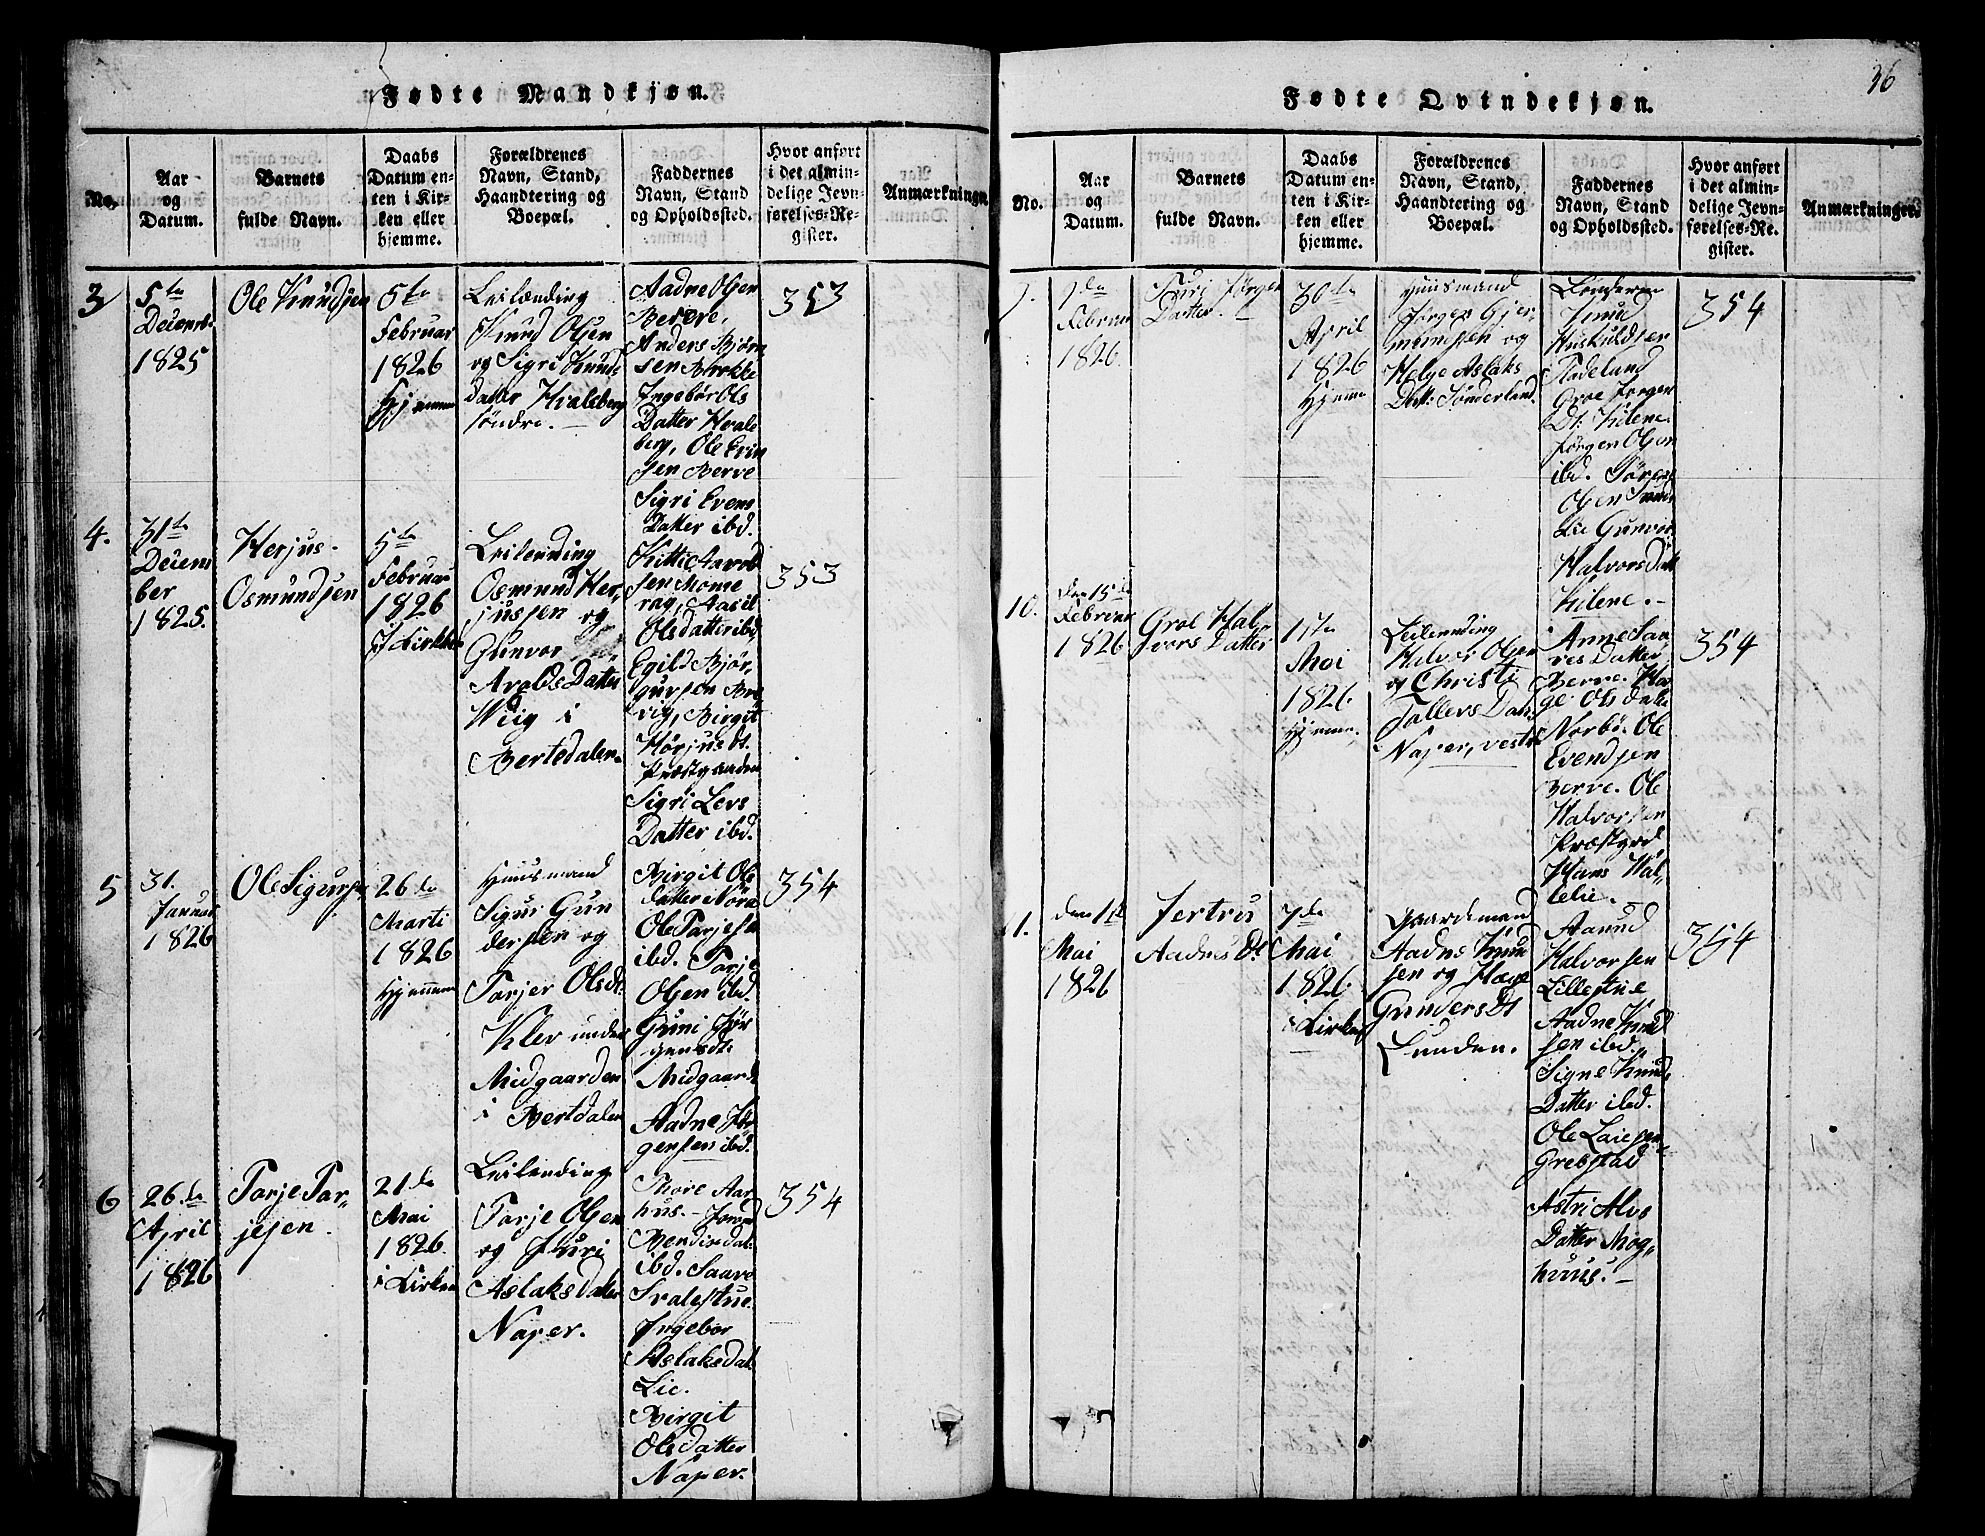 Fødte Mandkjøn.
No.
Aar
og
Datum.
Barnets
fulde Navn.
Daabs
Datum en-
ten i Kir-
ken eller
hjemme.
Forældrenes
Navn, Stand,
Haandtering og
Boepæl.
Faddernes
Navn, Stand
og Opholdssted.
Hvor anført
i det almin-
delige Jevn-
førelses-Re-
gister.
Anmærkninger.
3
5te
Decemb.
1825
Ole Knudsen
5te
Februar
1826
Hjemme
Leilænding
Knud Olsen
og Sigri Knuds
datter Hvaleberg
søndre.
Aadne Olsen
Berve,
Anders Bjørn
sen Brokke
Ingebør Ols
Datter Hvale
berg, Ole Evin
sen Berve
Sigri Evens
Datter ibd.
353
4.
31te
Decem
ber
1825.
Herjus
Osmundsen
5te
Februar
1826
i Kirken
Leilending
Osmund Her
jussen og
Gunvor
Arolds Datter
Wiig i
Bertedalen
Kitti Aavold
sen Mome
rag, Aasil
Olsdatter ibd
Egild Bjør
gufsen Bre
vig, Birgit
Hørjus dt.
Præstgaarden
Sigri Levs
Datter ibd.
353
5
31.
Januar
1826
Ole Sigurse
26de
Marti
1826
Hjemme
Huusmand
Sigur Gun
dersen og
Tarjer Olsdt.
Kler under
Midgaarden
i Bertdalen
Birgit Ols
datter Nøra
Ole Tarjese
ibd. Tarje
Olsen ibd.
Guni Jør
gensdt.
Midgaard
Aadne Jør
gensen ibd.
354
6
26de
April
1826
Tarje Tar-
jesen.
21de
Mai
1826.
i Kirken
Leilending
Tarje Olsen
og Juri
Aslaksdatter
Naper.
Thore Aar
hus.
ibd. Saavo
Ingebor
Aslaksdat.
Lie.
Birgit
Olsdatter
Naper.
354
36
Fødte Qvindekjøn.
No.
Aar
og
Datum.
Barnets
fulde Navn.
Daabs
Datum en-
ten i Kir-
ken eller
hjemme.
Forældrenes
Navn, Stand,
Haandtering og
Boepæl.
Faddernes
Navn, Stand
og Opholdssted.
Hvor anført
i det almin-
delige Jevn-
førelses-Re-
gister.
Anmærkninger.
Februar
1826
Turi Jørgen
Datter.
30te
April
1826
Hjemme
Huusmand
Jørgen Gjer
mundsen og
Helge Aslaks
Datt: Sønderland.
Knud
Huskuldsen
Groe Jørgen
Dt: Kilene
Jørgen Olsen
ibd. Tørres
Olsen
Lie Gunvor
Halvorsdatt
Kilene.
354
10.
den 15de
Februar
1826
Groe Hal
vors Datter
1ste
Mai
1826.
Hjemme.
Leilending
Halvor Olsen
og Christi
Tallevs Dat
Naper, vestre
Anne Tar
res Datter
Berve. Hæ
ge Olsdatter
Norbø. Ole
Evendsen
Berve. Ole
Halvorsen
Præstgrd.
Hans Hal
lelie.
354
11.
den 1te
Mai
1826
Jertru
Aadnes Dt
7de
Mai
1826.
i Kirken
Gaardemand
Aadne Knud
sen og Hæge
Gunders Dt
Lunden.
Aamund
Halvorsen
Lillestue
Aadne Knud
sen ibd.
Signe Knud
Datter ibd.
Ole
Grebstad
Astri Alvs
Datter Mog
huus.
354